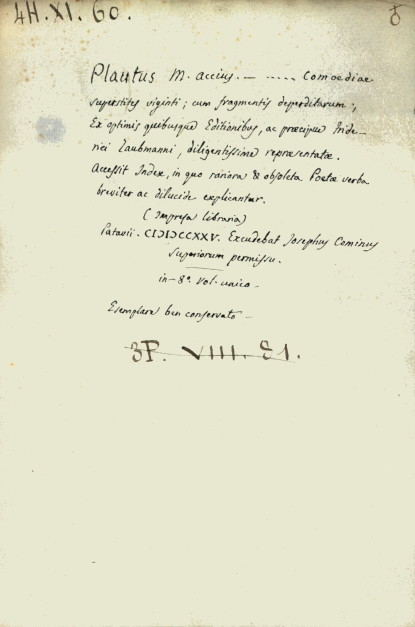 4H.XI.60.
Plautus M. accius. — ..... Comoediae
superstites viginti; cum fragmentis deperditarum;
Ex optimis quibusque Editionibus, ac præcipue Fride-
rici Taubmanni, diligentissime repræsentatæ.
Accessit Index, in quo rariora & obsoleta Poetæ verba
breviter ac dilucide explicantur.
(Impresa libraria)
Patavii. CIƆIƆCCXXV. Excudebat Josephus Cominus
superiorum permissu.
in-8º. Vol. unico —
Esemplare ben conservato —
3P. VIII. 81.